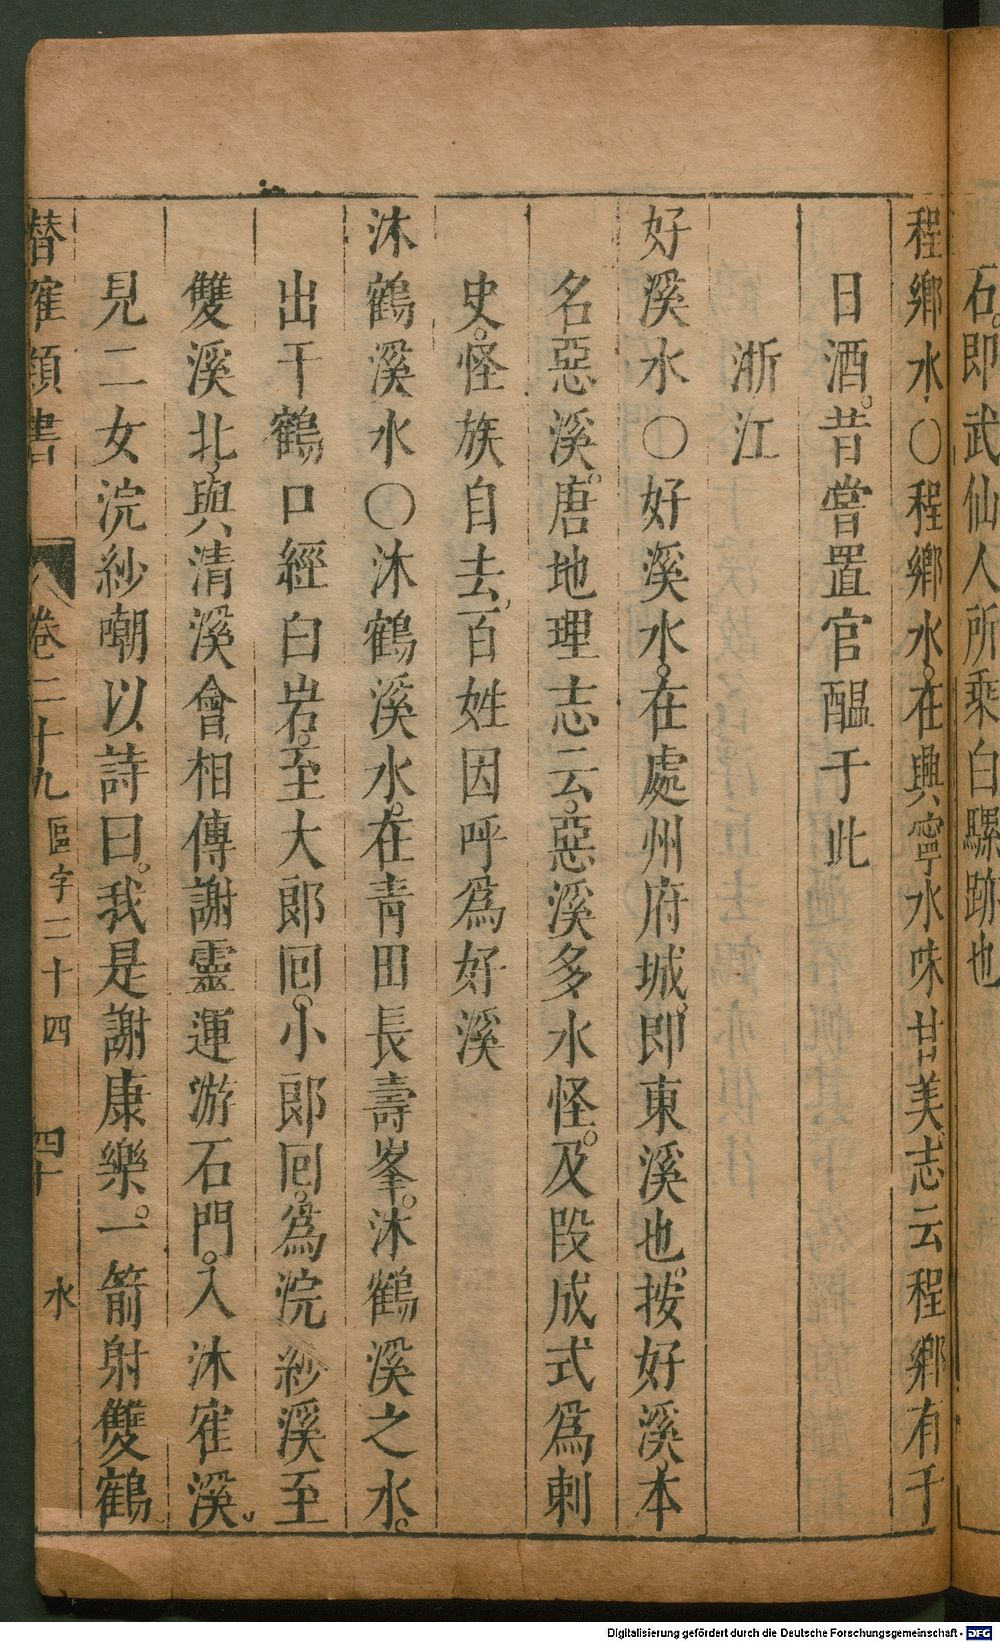 石。即武仙人所乘白騾跡也
程鄉水○程鄉水。在興寧水味甘美志云程鄉有千
日酒。昔嘗置官醖于此
浙江
好溪水○好溪水。在處州府城。即東溪也。按好溪。本
名惡溪。唐地理志云。惡溪多水怪。及段成式爲刺
史。怪族自去。百姓因呼爲好溪
沐鶴溪水○沐鶴溪水。在青田長壽峯。沐鶴溪之水。
出干鶴口經白岩。至大郎囘。小郎囘。爲浣紗溪至
雙溪北。與清溪會。相傳謝靈運游石門。入沐寉溪。
見二女浣紗嘲以詩曰。我是謝康樂。一箭射雙鶴。
潛確類書 卷二十九 區字二十四 四十 水
Digitalisierung gefördert durch die Deutsche Forschungsgemeinschaft - DFG